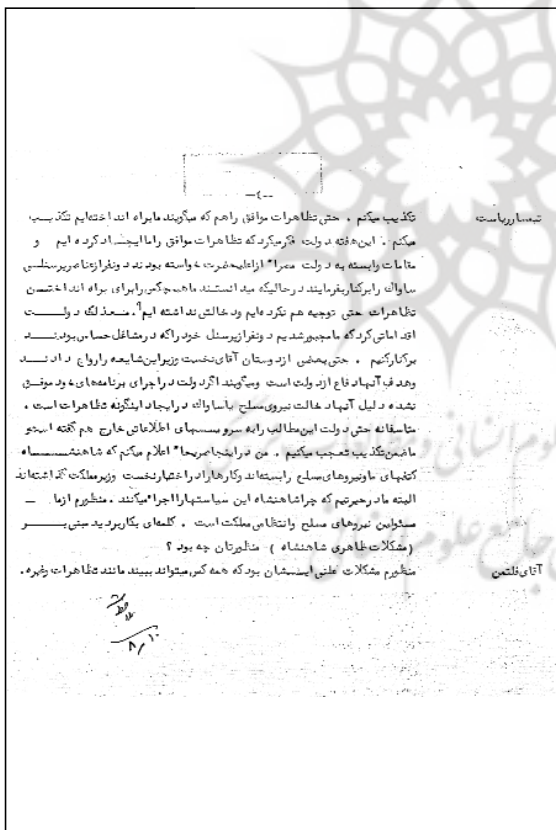 ـ٤ـ
تیمسار ریاست تکذیب میکنم . حتی تظاهرات موافق راهم که میگویند مابراه انداخته‌ایم تکذیب
میکنم . این هفته دولت فکرمیکرد که تظاهرات موافق را ما ایجاد کرده ایم و
مقامات وابسته به دولت مصرا" ازاعلیحضرت خواسته بودند دونفرازعناصرپرسنلی
ساواک رابرکنارفرمایند درحالیکه میدانستند ماهیچکس رابرای براه انداختن
تظاهرات حتی توجیه هم نکرده‌ایم ودخالتی نداشته ایم . معذلک دولت
اقداماتی کرد که مامجبورشدیم دونفرازپرسنل خود راکه درمشاغل حساس بودند
برکنارکنیم . حتی بعضی ازدوستان آقای نخست وزیراین شایعه رارواج دادند
وهدف آنها دفاع ازدولت است ومیگویند اگردولت دراجرای برنامه‌های خود موفق
نشده دلیل آنها دخالت نیروی مسلح یاساواک درایجاد اینگونه تظاهرات است .
متاسفانه حتی دولت این مطالب رابه سرویسهای اطلاعاتی خارج هم گفته است و
ماضمن تکذیب تعجب میکنیم . من دراینجا صریحا" اعلام میکنم که شاهنشاه
کتفهای ماونیروهای مسلح رابسته‌اند وکارهارادراختیارنخست وزیرمملکت گذاشته‌اند
البته مادرحیرتیم که چراشاهنشاه این سیاستهارااجرا میکنند . منظورم ازما ـ
مسئولین نیروهای مسلح وانتظامی مملکت است . کلمه‌ای بکاربردید مبنی بر
(مشکلات ظاهری شاهنشاه) منظورتان چه بود ؟
آقای فلتمن منظورم مشکلات علنی ایشان بود که همه کس میتواند ببیند مانند تظاهرات وغیره .
۱۰/۸
علوم انسانی و مطالعات
جامع علوم